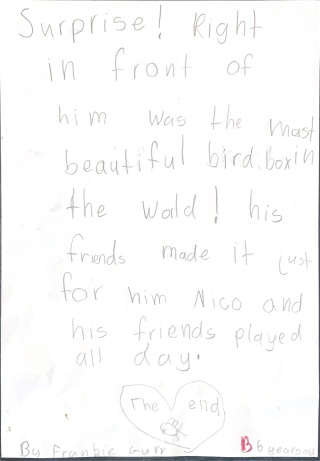 Surprise! Right
in front of
him was the mast
beautiful bird.box in
the wald! his
friends made it just
for him Nico and
his friends played
all day.
The end
By Frankie Gurr 6 years old